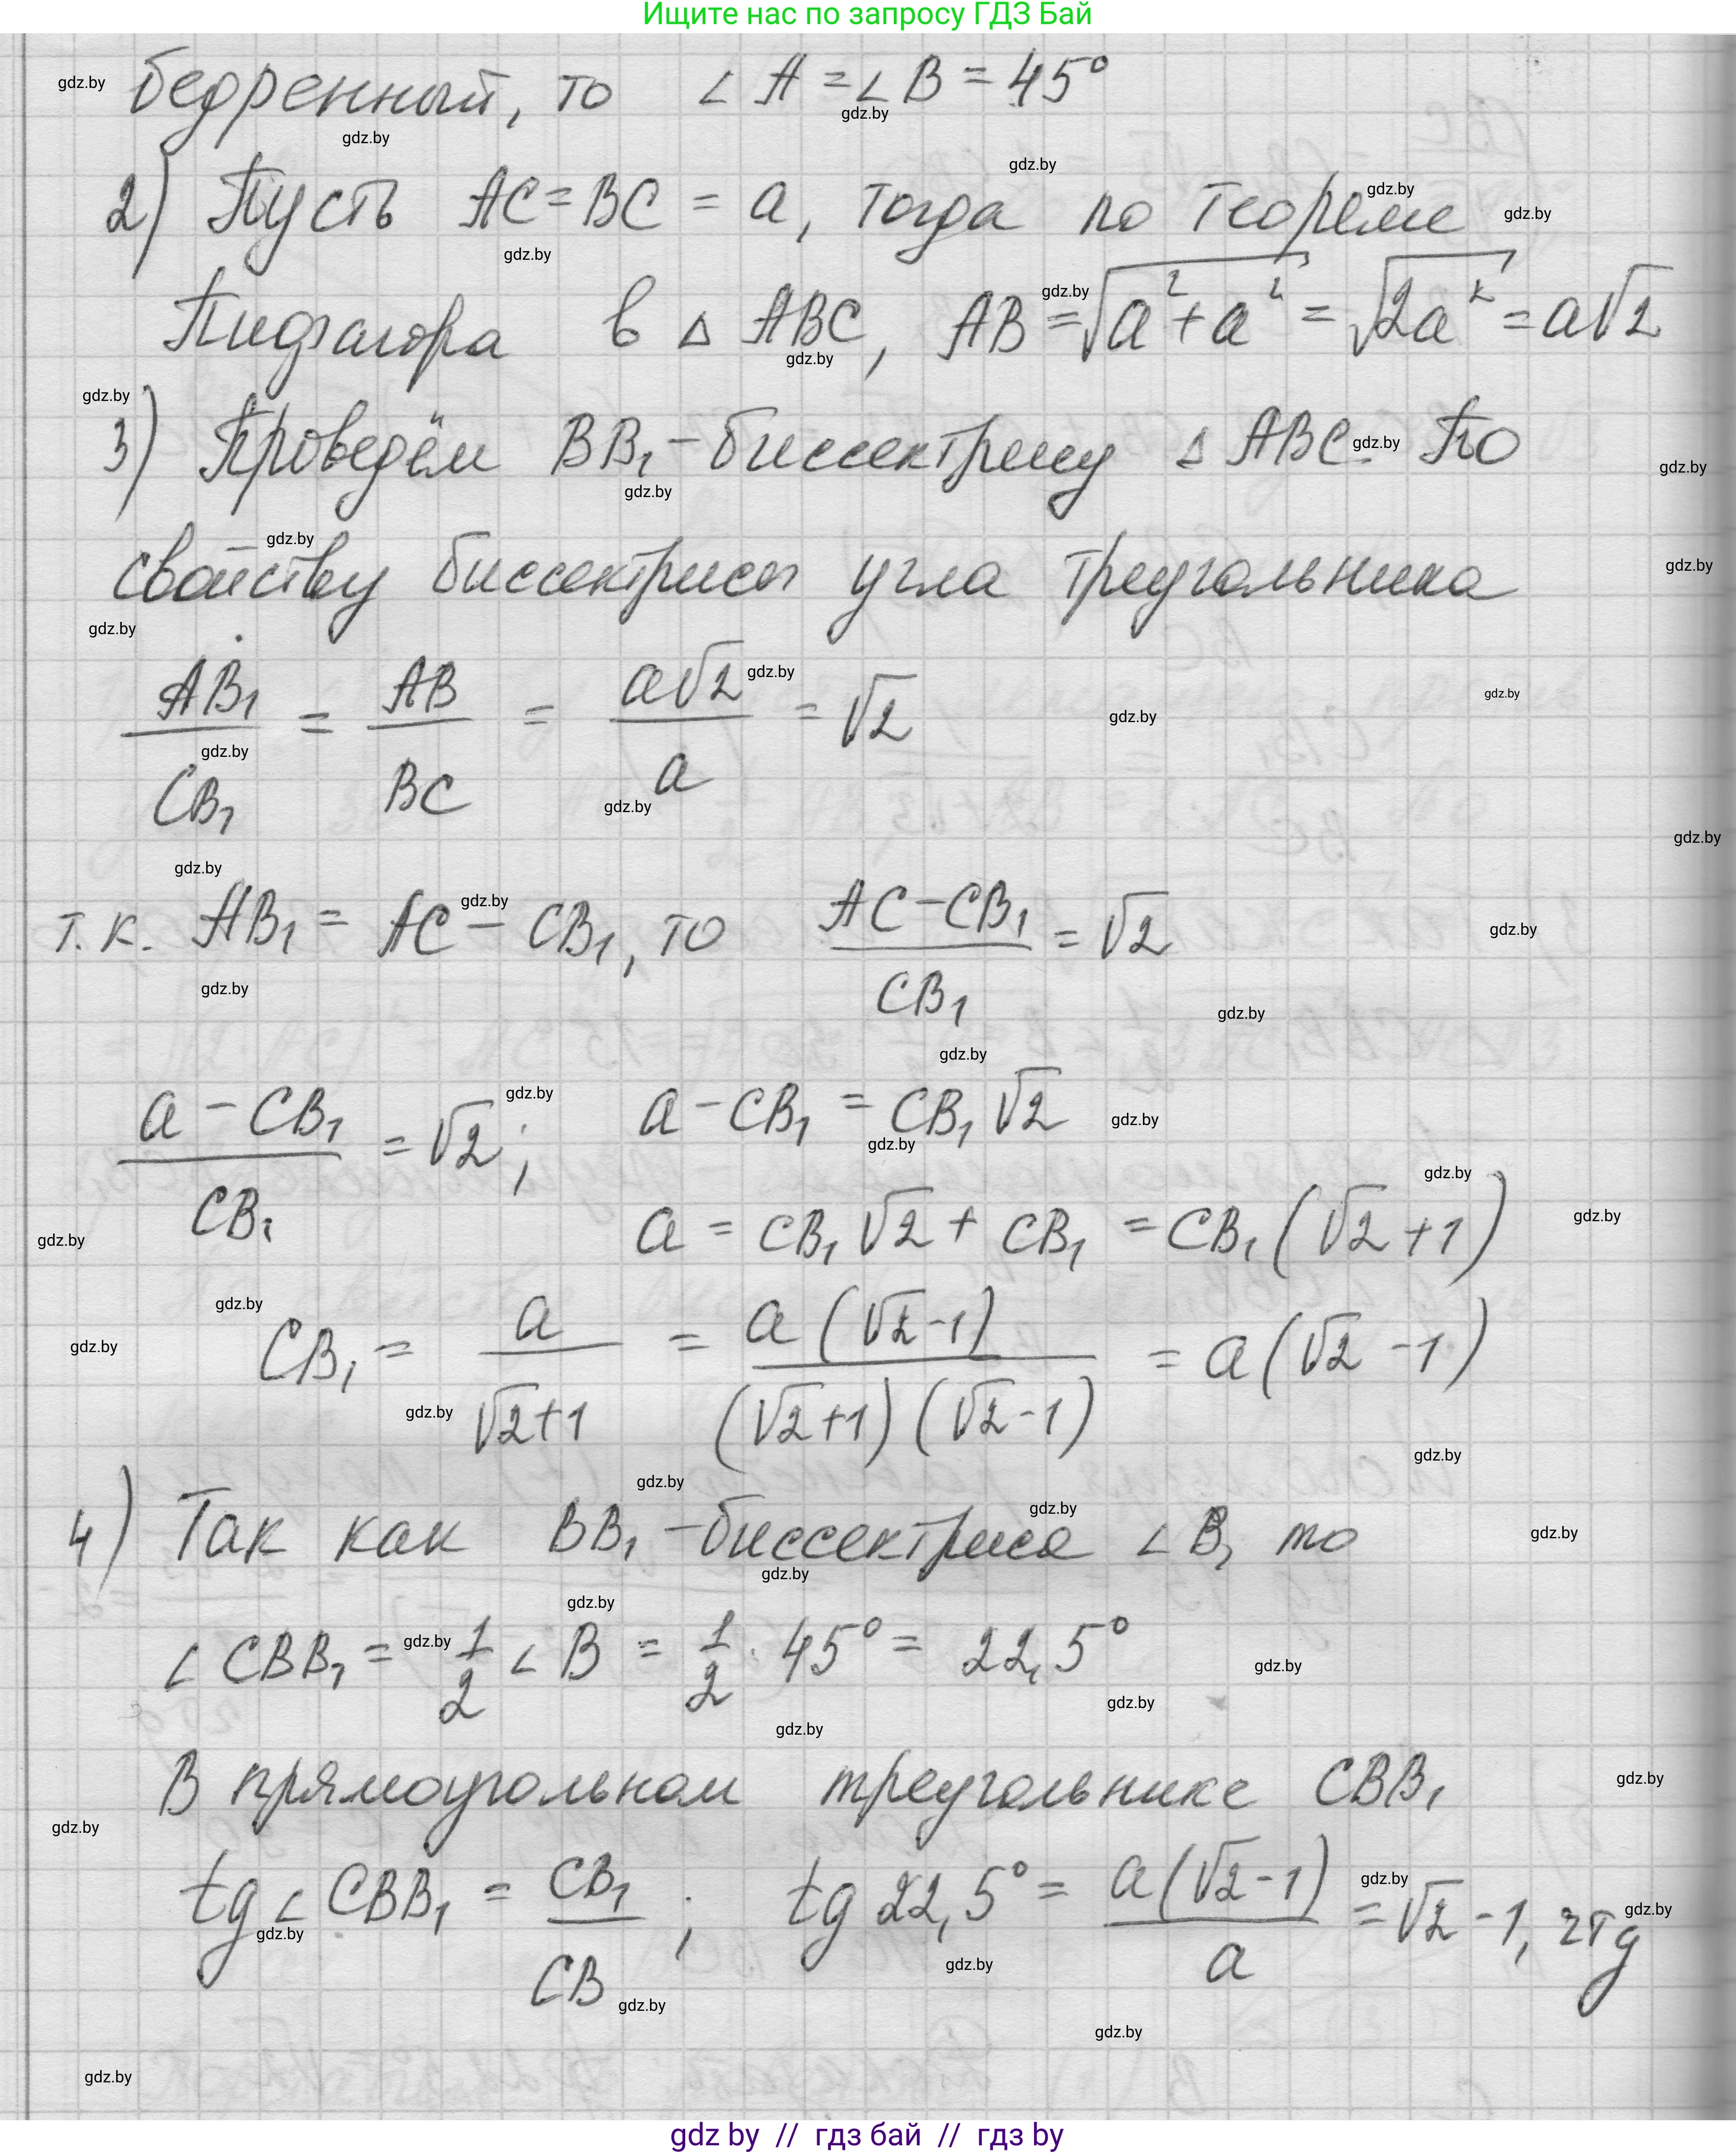 Ищите нас по запросу ГДЗ Бай
бедренный, то ∠A = ∠B = 45°
2) Пусть AC = BC = a, тогда по теореме
Пифагора в △ ABC, AB = √(a² + a²) = √(2a²) = a√2
3) Проведём BB₁ - биссектрису △ ABC. По
свойству биссектрисы угла треугольника
AB₁/CB₁ = AB/BC = a√2/a = √2
т.к. AB₁ = AC - CB₁, то (AC - CB₁)/CB₁ = √2
(a - CB₁)/CB₁ = √2; a - CB₁ = CB₁√2
a = CB₁√2 + CB₁ = CB₁(√2 + 1)
CB₁ = a/(√2+1) = a(√2-1)/((√2+1)(√2-1)) = a(√2 - 1)
4) Так как BB₁ - биссектриса ∠B, то
∠CBB₁ = 1/2 ∠B = 1/2 · 45° = 22,5°
В прямоугольном треугольнике CBB₁
tg∠CBB₁ = CB₁/CB; tg 22,5° = a(√2-1)/a = √2 - 1, чтд
gdz by // гдз бай // гдз by